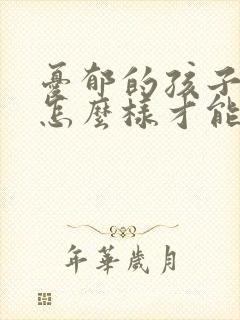 憂郁的孩子
怎麼樣才能
年華歲月